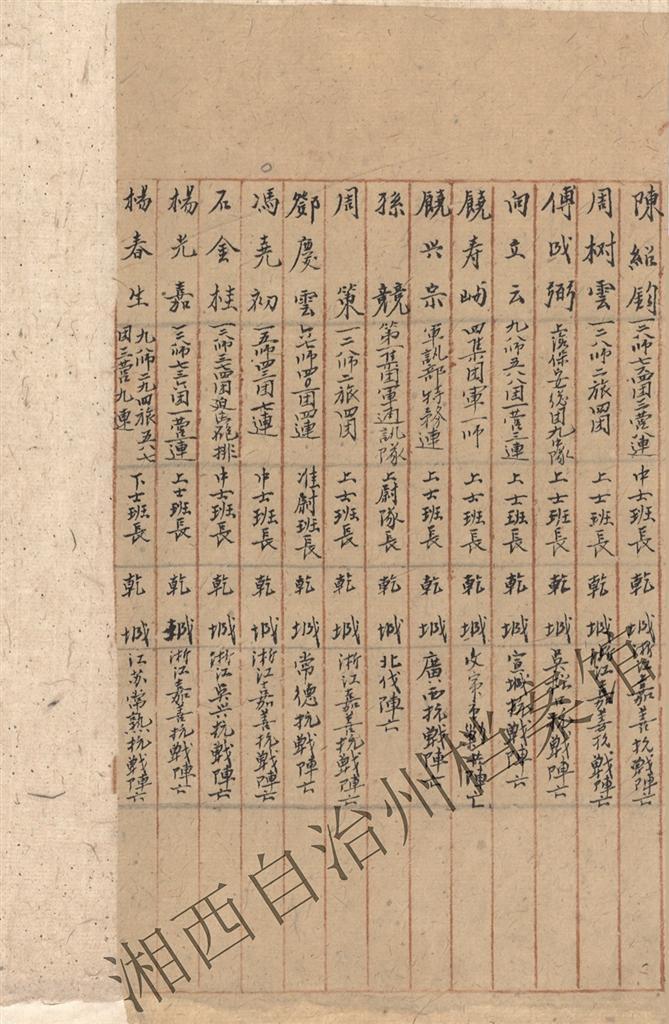 陳紹鈞 一二八師七六四团三營連 中士班長 乾城 浙江嘉善抗戰陣亡
周树雲 一二八師二旅四团 上士班長 乾城 浙江嘉善抗戰陣亡
傅成弼 上海保安总团九中隊 上士班長 乾城 吳淞抗戰陣亡
向立云 九師五八团一营三連 上士班長 乾城 宣城抗戰陣亡
饒寿 四集团軍一師 上士班長 乾城 陣亡
饒兴宗 軍訓部特務連 上士班長 乾城 廣西抗戰陣亡
孫競 第一集团軍通訊隊 上尉隊長 乾城 北伐陣亡
周策 一二八師二旅四团 上士班長 乾城 浙江嘉善抗戰陣亡
鄧慶雲 師四团四連 准尉班長 乾城 常德抗戰陣亡
馮堯初 一五師四三团七連 中士班長 乾城 浙江嘉善抗戰陣亡
石金桂 三師三四团迫击砲排 中士班長 乾城 浙江吳兴抗戰陣亡
楊光嘉 三師七三六团一营一連 上士班長 乾城 浙江嘉善抗戰陣亡
楊春生 九八師二九四旅五八七团三营九連 下士班長 乾城 江苏常熟抗戰陣亡
湘西自治州档案馆